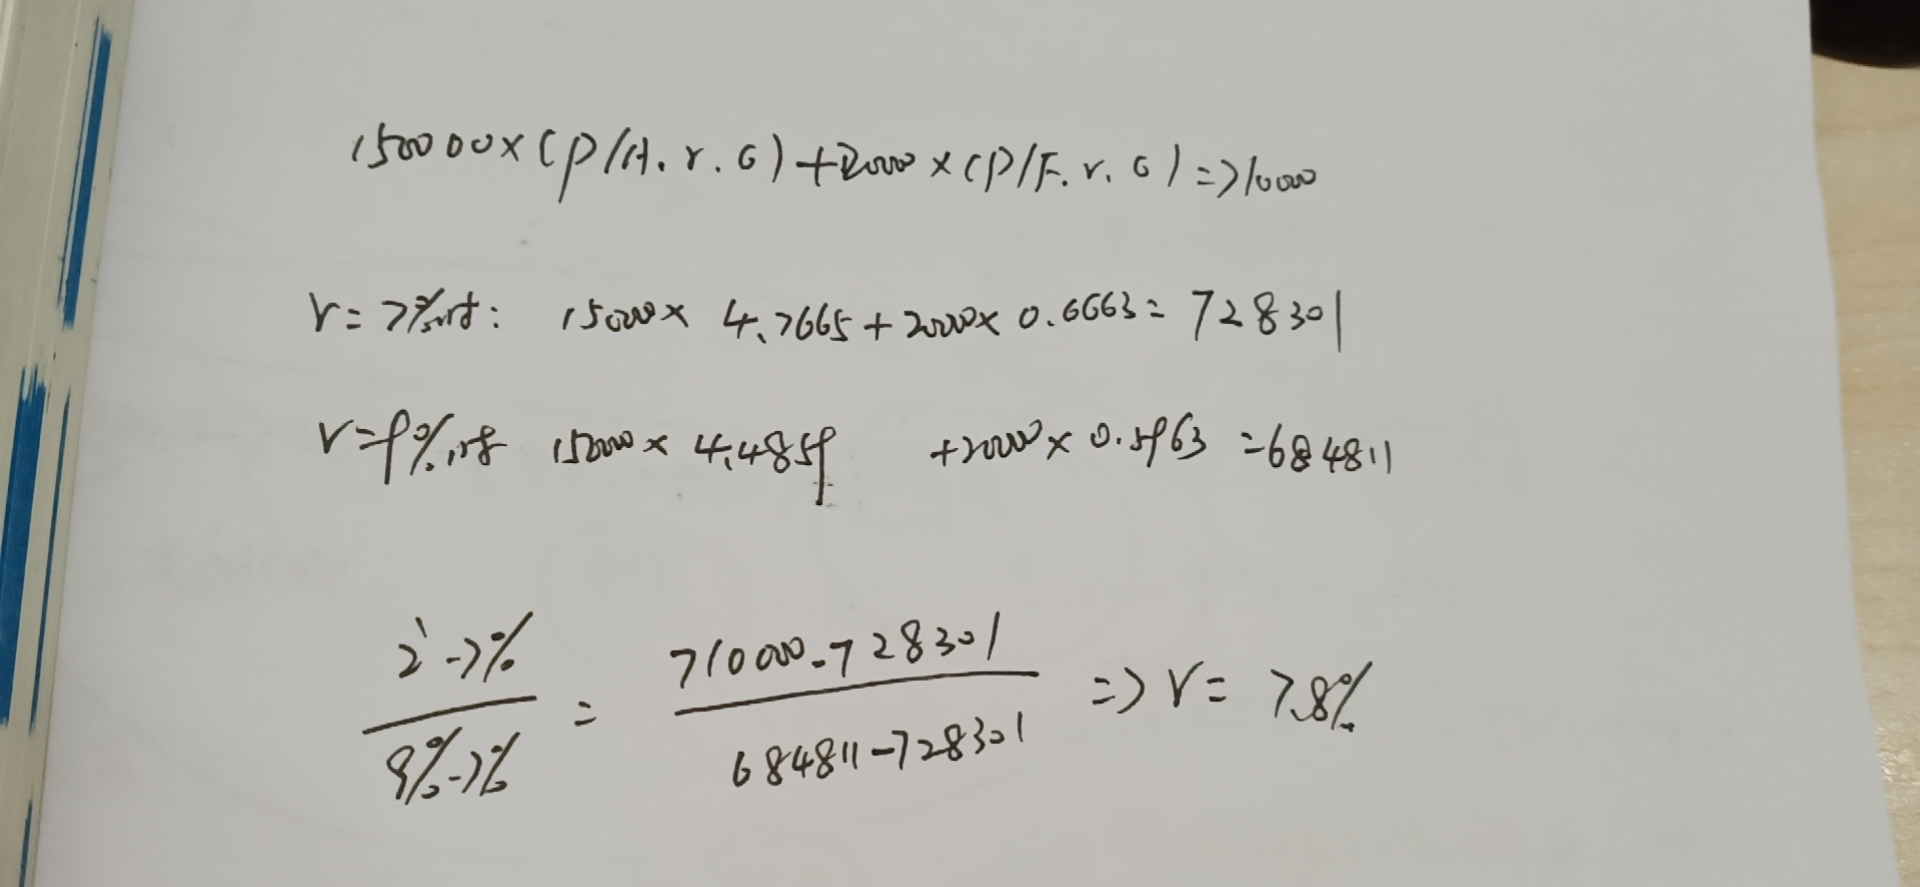 150000×(P/A.r.6)+20000×(P/F.r.6)=710000
r=7%时: 150000× 4.7665+20000× 0.6663=728301
r=9%时 150000× 4.4859 +20000× 0.5963 =684811
2-7% / 9%-7% = 710000-728301 / 684811-728301 => r= 7.8%